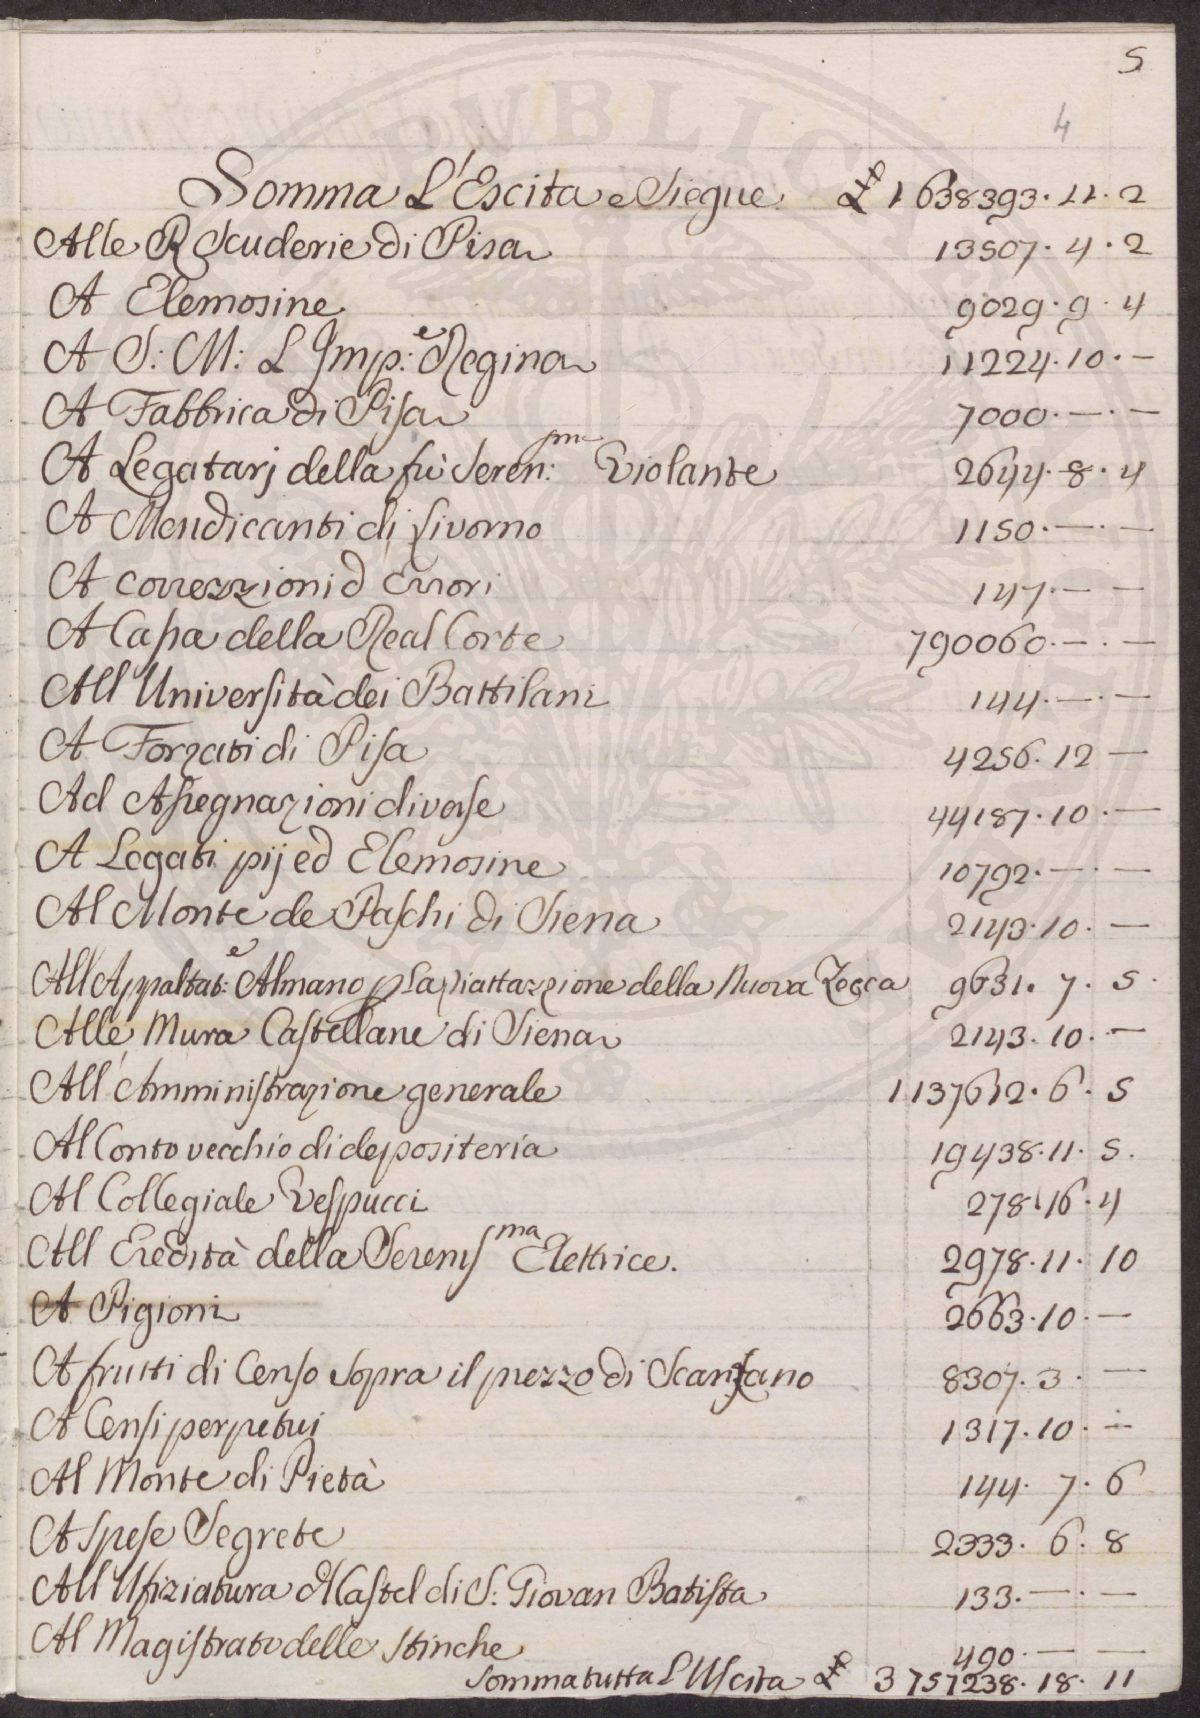 5
4
Somma L'Escita e Siegue. £ 1638393. 11. 2
Alle R Scuderie di Pisa 13507. 4. 2
A Elemosine 9029. 9. 4
A S: M: L'Imp:e Regina 11224. 10. —
A Fabbrica di Pisa 7000. —. —
A Legatarj della fù Seren:ma Violante 2644. 8. 4
A Mendicanti di Livorno 1150. —. —
A correzzioni d Errori 147. — —
A Cassa della Real Corte 790060. —. —
All Università dei Battilani 144. —. —
A Forzati di Pisa 4256. 12 —
Ad Assegnazioni diverse 44187. 10. —
A Legati pij ed Elemosine 10792. —. —
Al Monte de Paschi di Siena 2143. 10. —
All'Appaltat:e Almano p La piattazzione della Nuova Zecca 9631. 7. 5.
Alle Mura Castellane di Siena 2143. 10. —
All'Amministrazione generale 1137612. 6. 5
Al Conto vecchio di depositeria 19438. 11. 5.
Al Collegiale Vespucci 278. 16. 4
All Eredità della Sereniss ma Elettrice. 2978. 11. 10
A Pigioni 2663. 10. —
A frutti di Censo sopra il prezzo di Scansano 8307. 3. —
A Censi perpetui 1317. 10. —
Al Monte di Pietà 144. 7. 6
A Spese Segrete 2333. 6. 8
All Ufiziatura Castel di S: Giovan Batista 133. —. —
Al Magistrato delle Stinche 490. — —
Somma tutta L'Uscita £ 3757238. 18. 11